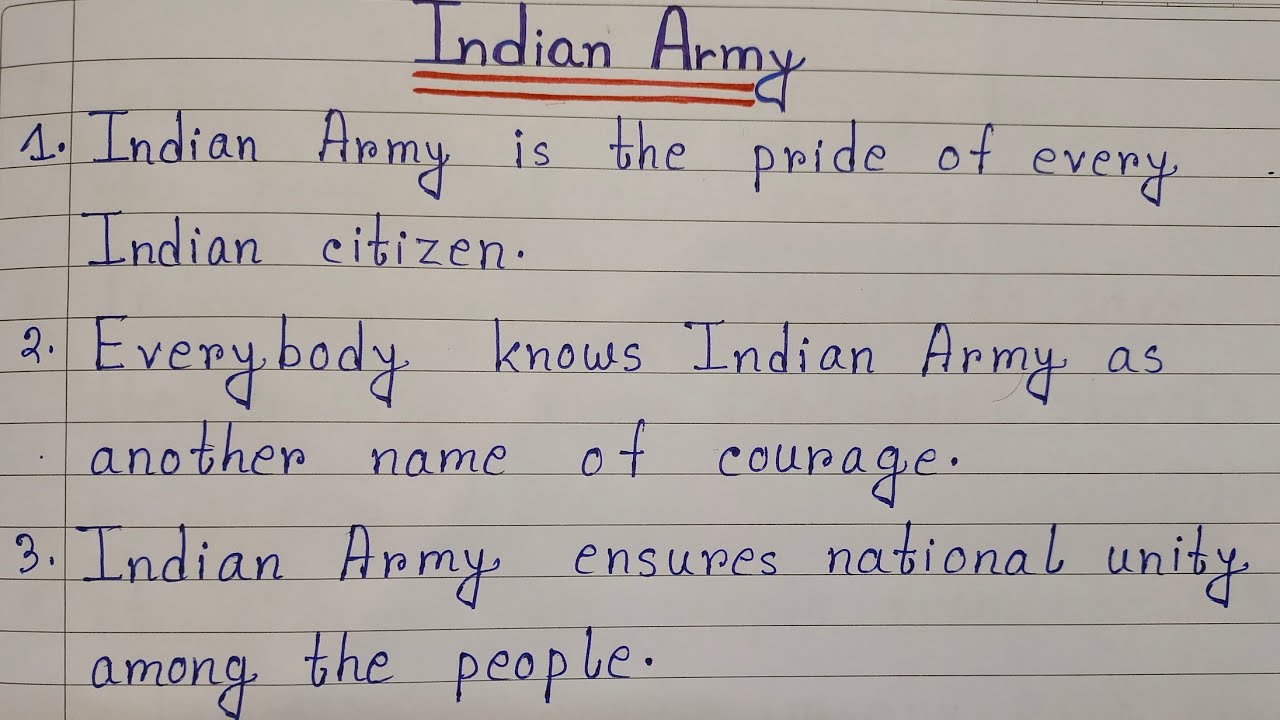 Indian Army
1. Indian Army is the pride of every
Indian citizen.
2. Everybody knows Indian Army as
another name of courage.
3. Indian Army ensures national unity
among the people.